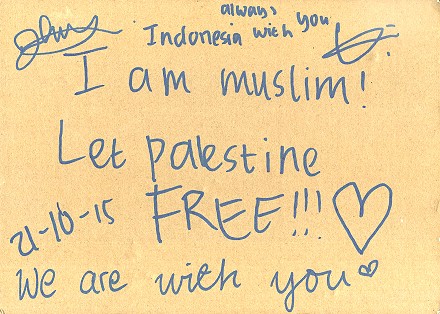 always
Indonesia with you
I am muslim!
Let palestine
21-10-15 FREE!!!
We are with you